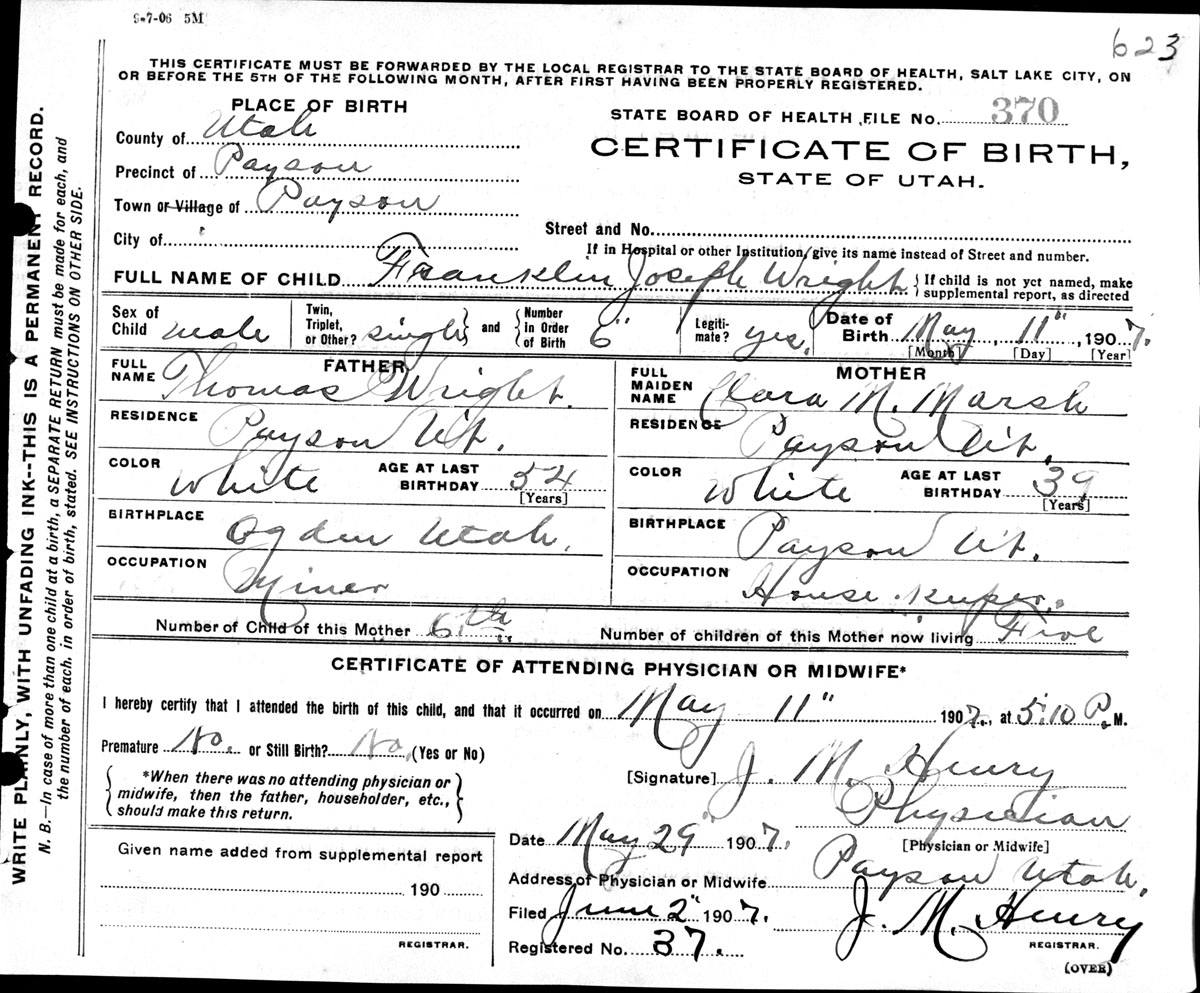 9-7-06 5M
623
THIS CERTIFICATE MUST BE FORWARDED BY THE LOCAL REGISTRAR TO THE STATE BOARD OF HEALTH, SALT LAKE CITY, ON
OR BEFORE THE 5TH OF THE FOLLOWING MONTH, AFTER FIRST HAVING BEEN PROPERLY REGISTERED.
WRITE PLAINLY, WITH UNFADING INK--THIS IS A PERMANENT RECORD.
N. B.—In case of more than one child at a birth, a SEPARATE RETURN must be made for each, and
the number of each, in order of birth, stated. SEE INSTRUCTIONS ON OTHER SIDE.
PLACE OF BIRTH
County of Utah
Precinct of Payson
Town or Village of Payson
City of
STATE BOARD OF HEALTH FILE No. 370
CERTIFICATE OF BIRTH,
STATE OF UTAH.
Street and No.
If in Hospital or other Institution, give its name instead of Street and number.
FULL NAME OF CHILD Franklin Joseph Wright { If child is not yet named, make
supplemental report, as directed
Sex of Child male Twin, Triplet, or Other? single } and { Number in Order of Birth 6" Legiti-mate? yes, Date of Birth May, 11", 1907.
[Month] [Day] [Year]
FATHER
FULL NAME Thomas Wright.
RESIDENCE Payson Ut.
COLOR White AGE AT LAST BIRTHDAY 54
[Years]
BIRTHPLACE Ogden Utah.
OCCUPATION Miner
MOTHER
FULL MAIDEN NAME Clara M. Marsh
RESIDENCE Payson Ut.
COLOR White AGE AT LAST BIRTHDAY 39
[Years]
BIRTHPLACE Payson Ut.
OCCUPATION House keeper.
Number of Child of this Mother 6th. Number of children of this Mother now living Five
CERTIFICATE OF ATTENDING PHYSICIAN OR MIDWIFE*
I hereby certify that I attended the birth of this child, and that it occurred on May 11" 1907, at 5:10 P. M.
Premature No. or Still Birth? No (Yes or No)
{ *When there was no attending physician or
midwife, then the father, householder, etc.,
should make this return. }
[Signature] J. M. Henry
Physician
[Physician or Midwife]
Date May 29" 1907.
Address of Physician or Midwife Payson Utah.
Filed June 2" 1907. J. M. Henry
REGISTRAR.
Registered No. 37.
(OVER)
Given name added from supplemental report
190
REGISTRAR.